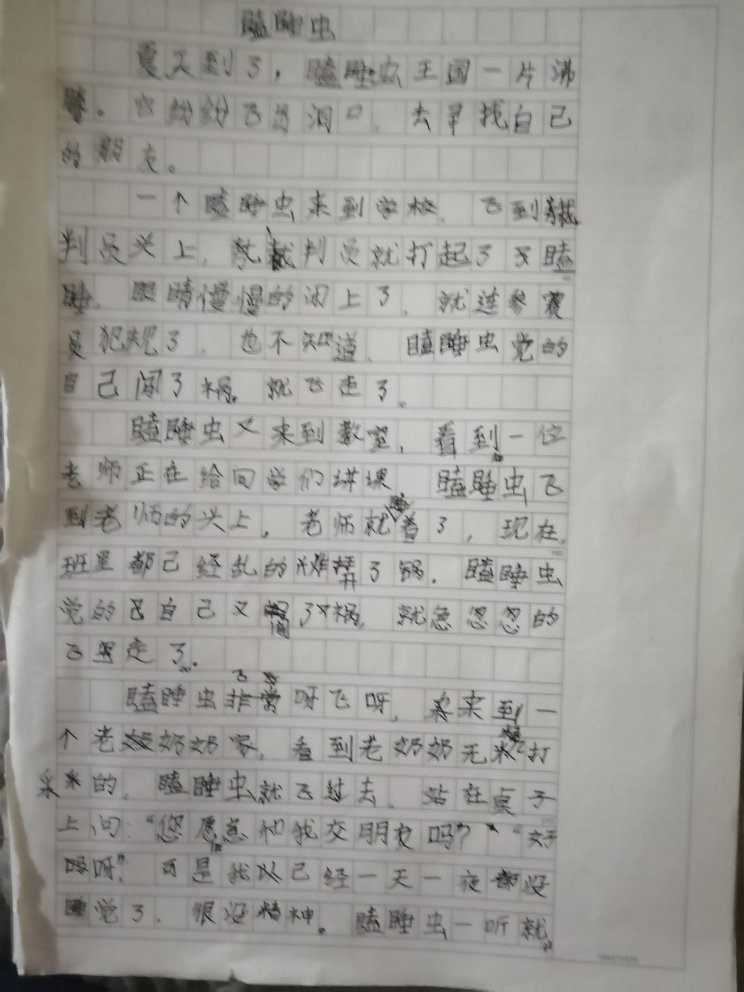 瞌睡虫
夏天到了，瞌睡虫王国一片沸
腾。它纷纷飞出洞口，去寻找自己
的朋友。
一个瞌睡虫来到学校，飞到裁
判员头上，裁判员就打起了瞌
睡，眼睛慢慢的闭上了，就连参赛
员犯规了，也不知道，瞌睡虫觉的
自己闯了祸。就飞走了。
瞌睡虫又来到教室，看到一位
老师正在给同学们讲课 瞌睡虫飞
到老师的头上，老师就睡着了，现在，
班里都已经乱的炸开了锅。瞌睡虫
觉的自己又闯了祸。就急忽忽的
飞走了。
瞌睡虫飞呀飞呀，来到一
个老奶奶家，看到老奶奶无精打
采的，瞌睡虫就飞过去，站在桌子
上问：“您愿意和我交朋友吗？”“好
呀”可是我以已经一天一夜都没
睡觉了，很没精神。瞌睡虫一听就